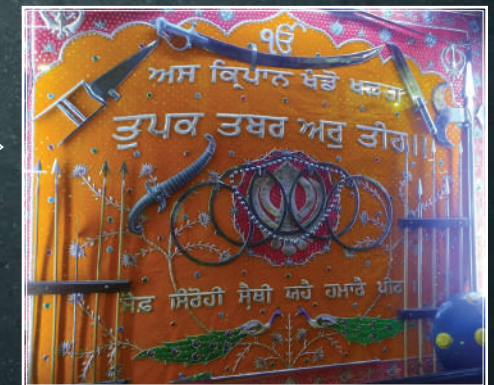 ੴ
ਅਸ ਕ੍ਰਿਪਾਨ ਖੰਡੋ ਖੜਗ
ਤੁਪਕ ਤਬਰ ਅਰੁ ਤੀਰ॥
ਸੈਫ਼ ਸਿਰੋਹੀ ਸੈਥੀ ਯਹੈ ਹਮਾਰੈ ਪੀਰ